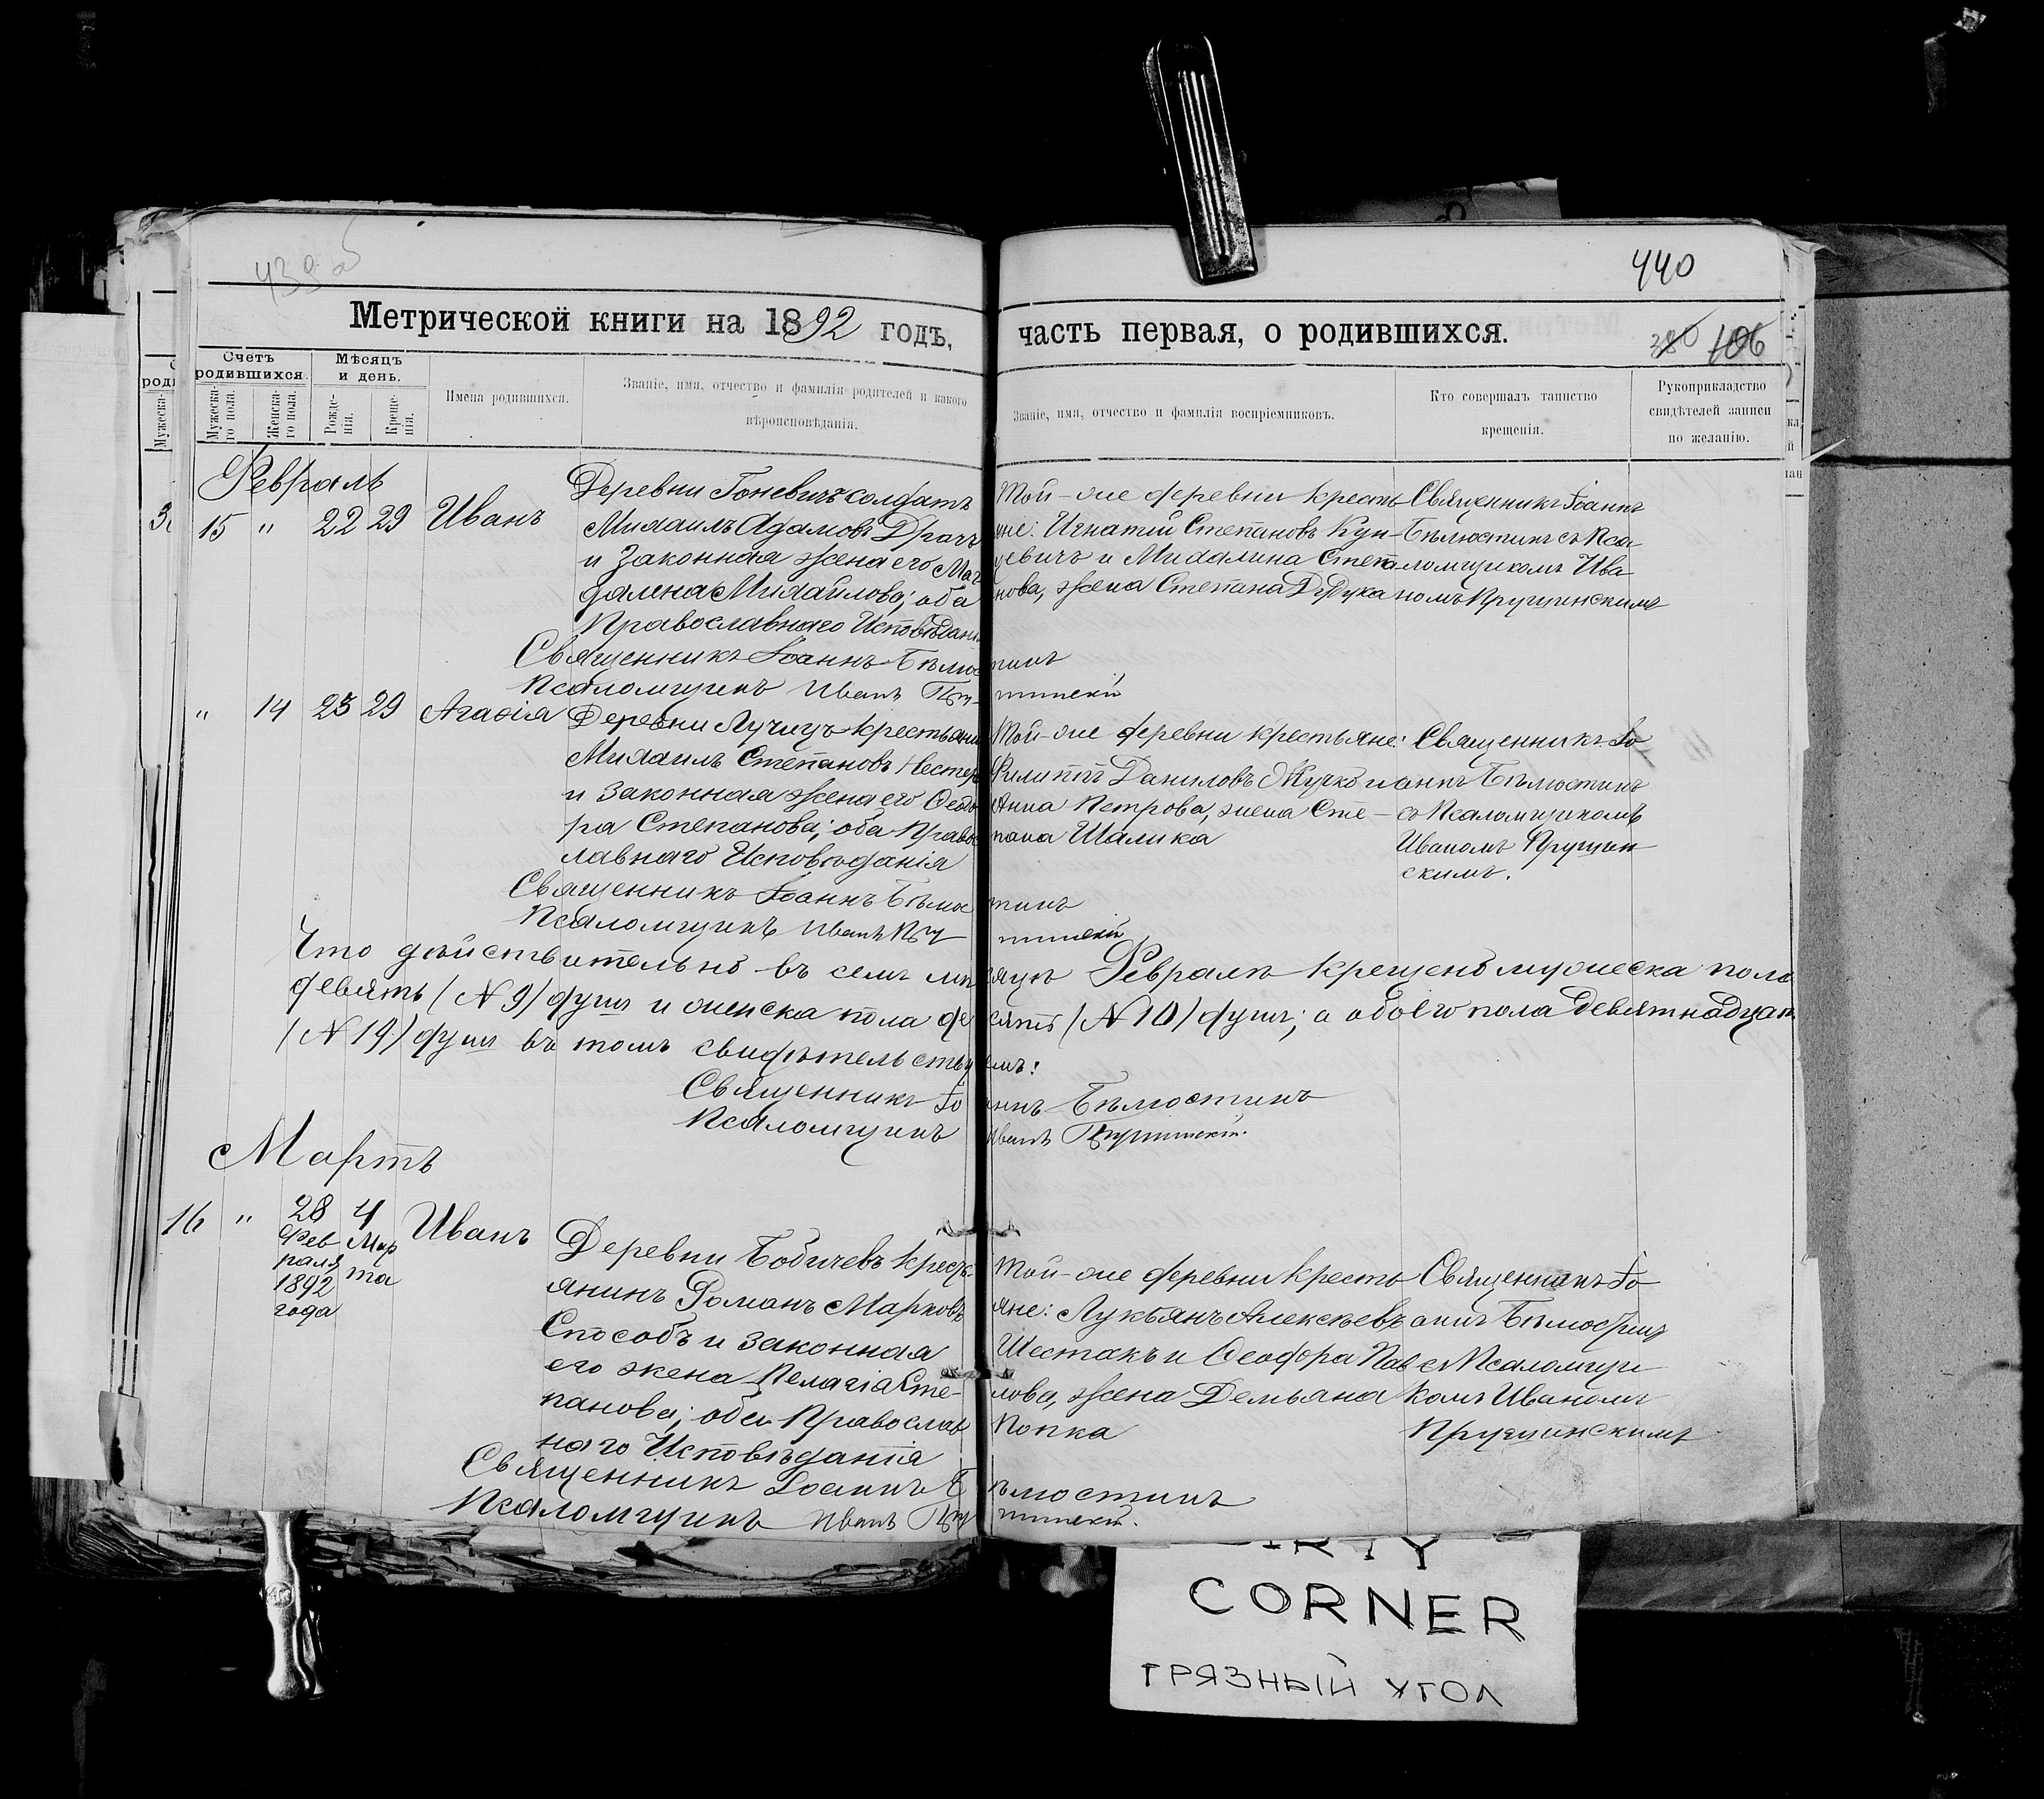 439 об
440
Метрической книги на 1892 годъ,
часть первая, о родившихся.
380 106
Счетъ родившихся.
Мѣсяцъ и день.
Мужеска-го пола.
Женска-го пола.
Рожде-нія.
Креще-нія.
Имена родившихся.
Званіе, имя, отчество и фамилія родителей и какого вѣроисповѣданія.
Званіе, имя, отчество и фамилія воспріемниковъ.
Кто совершалъ таинство крещенія.
Рукоприкладство свидѣтелей записи по желанію.
Февраль
15 " 22 29 Иванъ
Деревни Гоневичъ солдатъ
Михаилъ Адамовъ Драчъ
и Законная жена его Маг
далена Михайлова; оба
Православнаго Исповѣдані
Той-же деревни кресть
яне: Игнатій Степановъ Кун-
цевичъ и Михалина Степа
нова, жена Степана Дядука
Священникъ Іоаннъ
Бѣлюстинъ съ Пса
ломщикомъ Ива
номъ Прущинскимъ
Священникъ Іоаннъ Бѣлюстинъ
Псаломщикъ Иванъ
" 14 23 29 Агафія
Деревни Лучицъ крестьянин
Михаилъ Степановъ Нестер
и Законная жена его Ѳеодо
ра Степанова; оба Правос
лавнаго Исповѣданія
Той-же деревни крестьяне:
Филиппъ Даниловъ Жучко и
Анна Петрова, жена Сте-
пана Шалика
Священникъ Іо
аннъ Бѣлюстинъ
съ Псаломщикомъ
Иваномъ Прущин
скимъ.
Священникъ Іоаннъ Бѣлюстинъ
Псаломщикъ Иванъ
Что дѣйствительно въ семъ мѣсяцѣ Февралѣ крещено мужеска пола
девять (№ 9) душъ и женска пола десять (№ 10) душъ; а обоего пола девятнадцать
(№ 19) душъ въ томъ свидѣтельствуемъ:
Священникъ Іоаннъ Бѣлюстинъ
Псаломщикъ Иванъ Прущинскій.
Мартъ
16 " 28 4 Иванъ
Фев Мар
раля та
1892
года
Деревни Бобичевъ крест
янинъ Романъ Марковъ
Способъ и Законная
его жена Пелагія Сте-
панова; оба Православ
наго Исповѣданія
Той-же деревни кресть
яне: Лукьянъ Алексѣевъ
Шестакъ и Ѳеодора Пав
лова, жена Демьяна
Попка
Священникъ Іо
аннъ Бѣлюстинъ
съ Псаломщи
комъ Иваномъ
Прущинскимъ
Священникъ Іоаннъ Бѣлюстинъ
Псаломщикъ Иванъ
RTY
CORNER
ГРЯЗНЫЙ УГОЛ